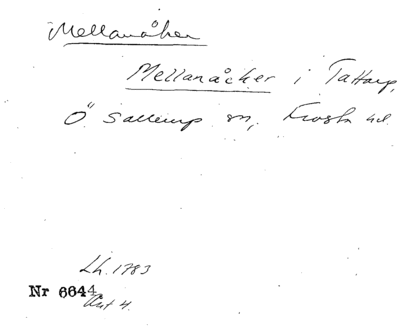 Mellanåker
Mellanåcker i Tattarp,
Ö Sallerup sn, Frosta hd.
Lh. 1783
Nr 6644
Akt 4.